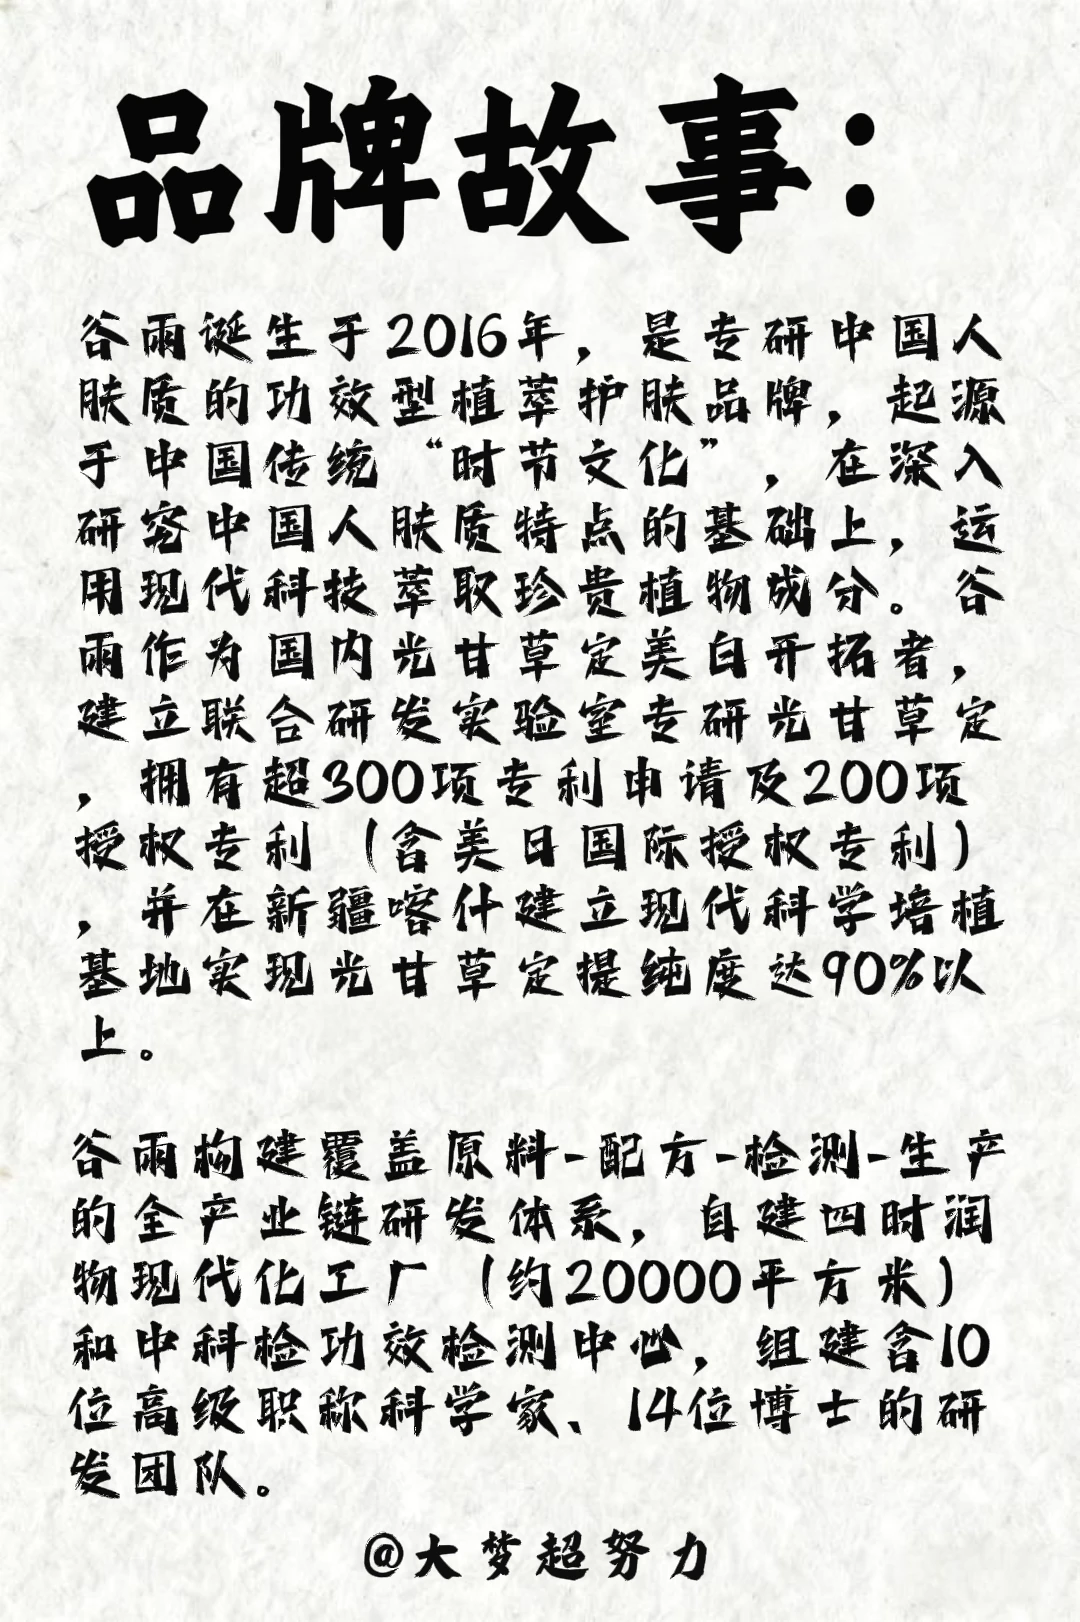 品牌故事：
谷雨诞生于2016年，是专研中国人
肤质的功效型植萃护肤品牌，起源
于中国传统“时节文化”，在深入
研究中国人肤质特点的基础上，运
用现代科技萃取珍贵植物成分。谷
雨作为国内光甘草定美白开拓者，
建立联合研发实验室专研光甘草定
，拥有超300项专利申请及200项
授权专利（含美日国际授权专利）
，并在新疆喀什建立现代科学培植
基地实现光甘草定提纯度达90%以
上。
谷雨构建覆盖原料-配方-检测-生产
的全产业链研发体系，自建四时润
物现代化工厂（约20000平方米）
和中科检功效检测中心，组建含10
位高级职称科学家、14位博士的研
发团队。
@大梦超努力